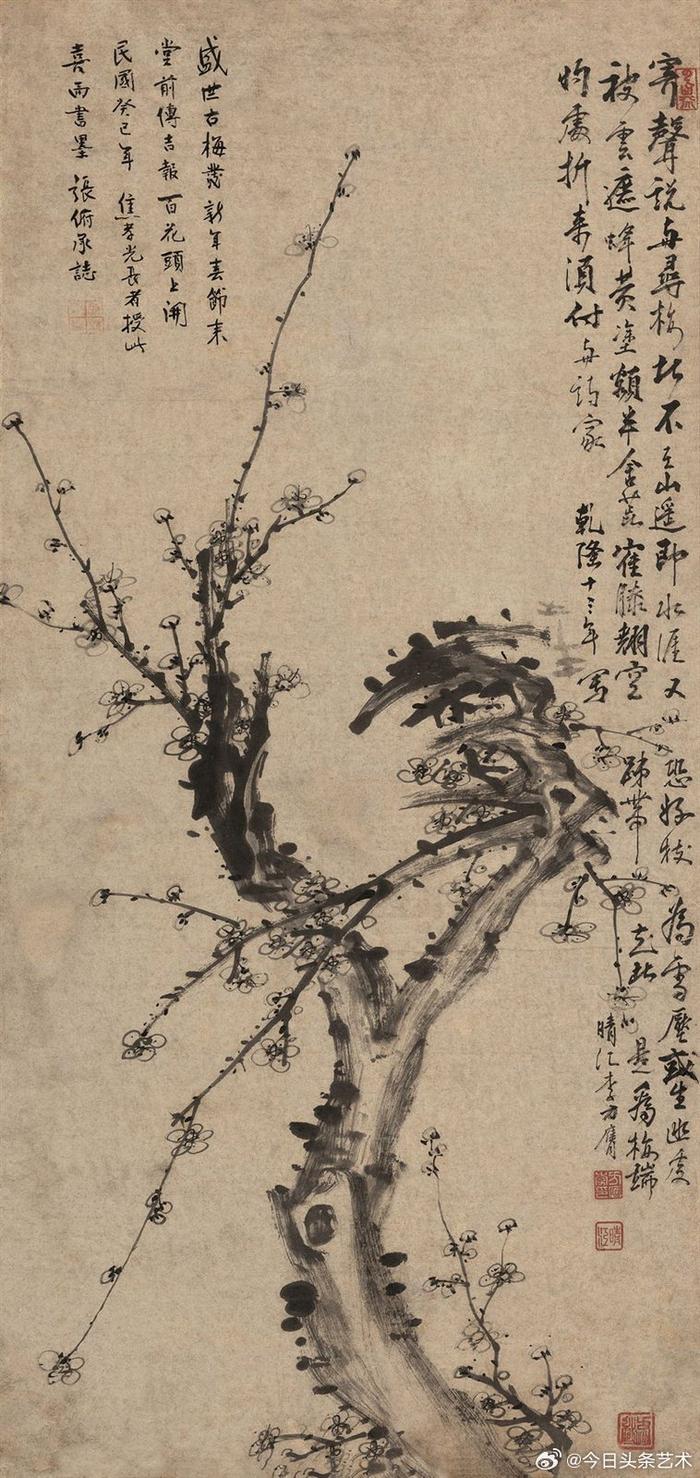 寄聲說与尋梅者不在山邊即水涯又恐好枝為雪壓或生幽處
被雲遮蜂黃塗額半含蕊雀膝翹空疎帶花此是為梅端
的處折來須付与詩家 乾隆十三年寫 晴江李方膺
盛世古梅發新年喜節來
堂前傳吉報百花頭上開
民國癸巳年 焦孝光長者授此
喜雨書墨 張俯承誌
@今日头条艺术